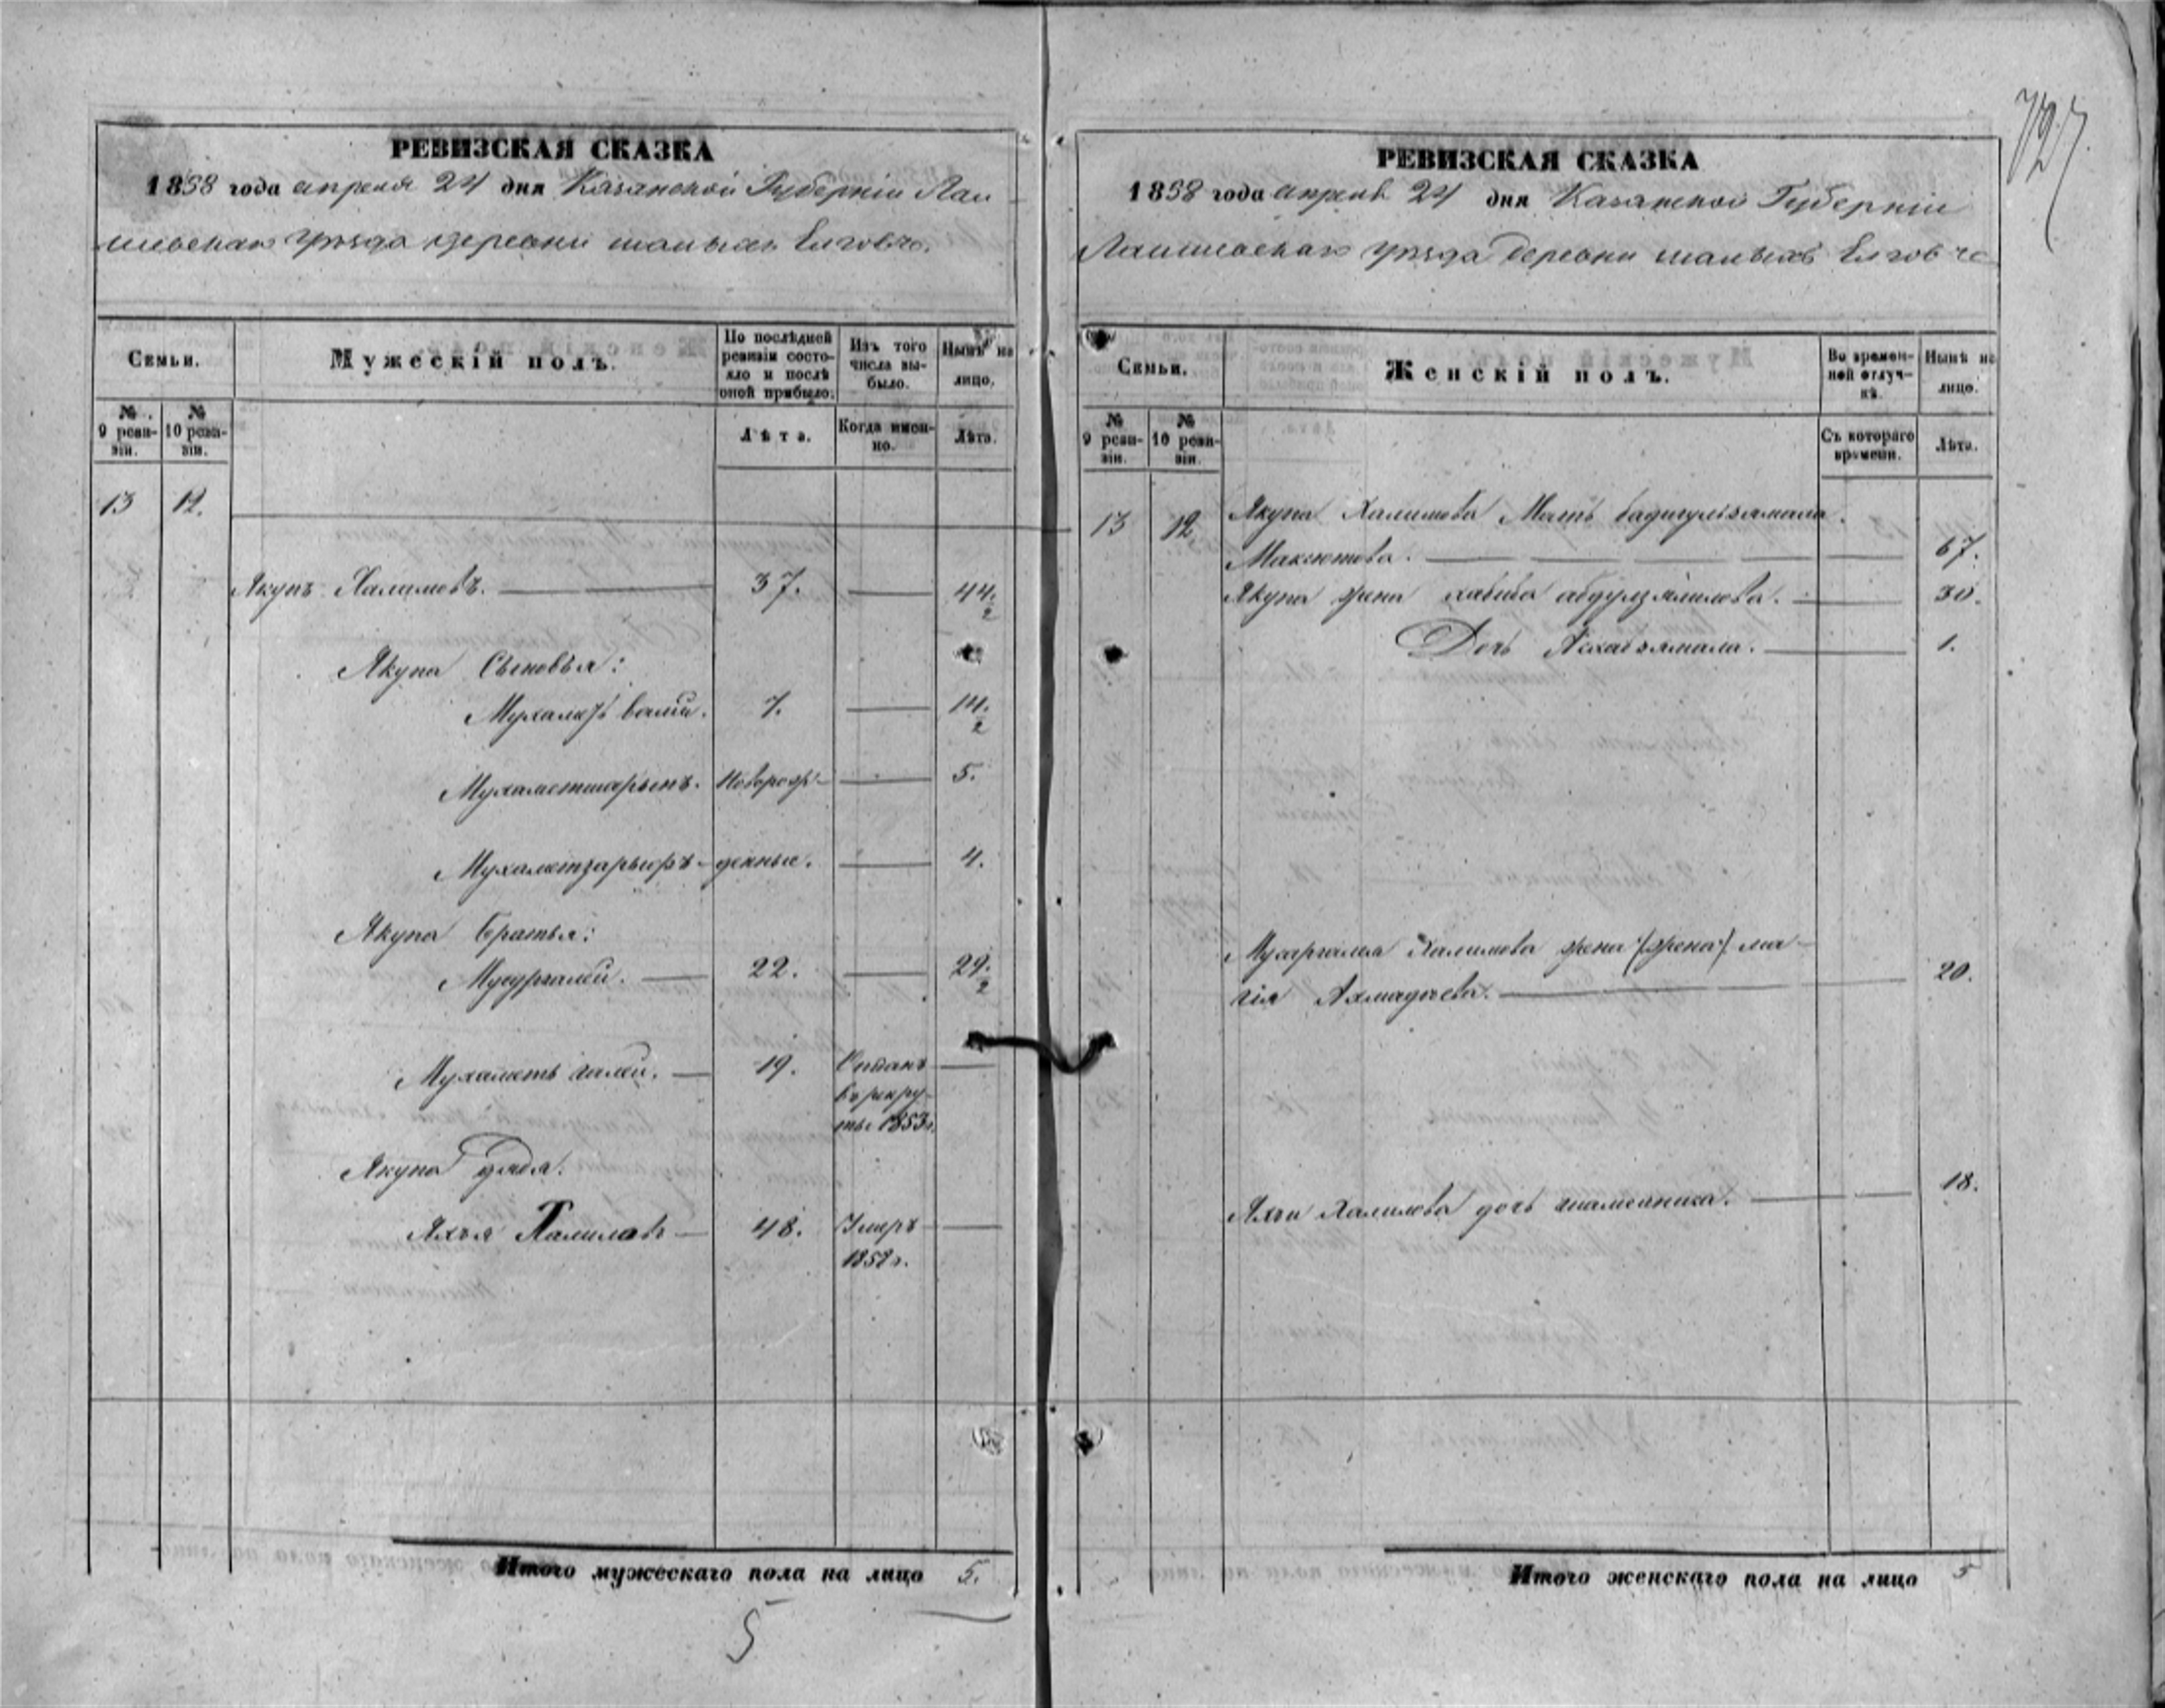 727
РЕВИЗСКАЯ СКАЗКА
1858 года апреля 24 дня Казанской Губерніи Лаи-
шевскаго уѣзда деревни малыхъ Елговъ
Семьи.
Мужескій полъ.
По послѣдней ревизіи состояло и послѣ оной прибыло.
Изъ того числа выбыло.
Нынѣ на лицо.
№ 9 ревизіи.
№ 10 ревизіи.
Лѣта.
Когда именно.
Лѣта.
13 12.
Якупъ Халитовъ. 37. 44. 2
Якупа Сыновья:
Мухаметъ вали. 7. 14. 2
Мухаметшарыпъ. Новорож- 5.
Мухаметзарыфъ денные. 4.
Якупа братья:
22. 29. 2
Мухаметь галей. 19. Отданъ
въ рекру-
ты 1853 г.
Якупа дядя.
Яхъя Халиловъ 48. Умеръ
185 г.
Итого мужескаго пола на лицо 5.
5
РЕВИЗСКАЯ СКАЗКА
1858 года апреля 24 дня Казанской Губерніи
Лаишевскаго уѣзда деревни малыхъ Елговъ
Семьи.
Женскій полъ.
Во временной отлучкѣ.
Нынѣ на лицо.
№ 9 ревизіи.
№ 10 ревизіи.
Съ котораго времени.
Лѣта.
13 12 Якупа Халитова Мать бадигульзямала
Максютова. 67.
Якупа жена хабиба абдулзялилова. 30.
Дочь 1.
Халитова жена (жена) ма-
гія Ахмадеева. 20.
Яхъи Халилова дочь 18.
Итого женскаго пола на лицо 5